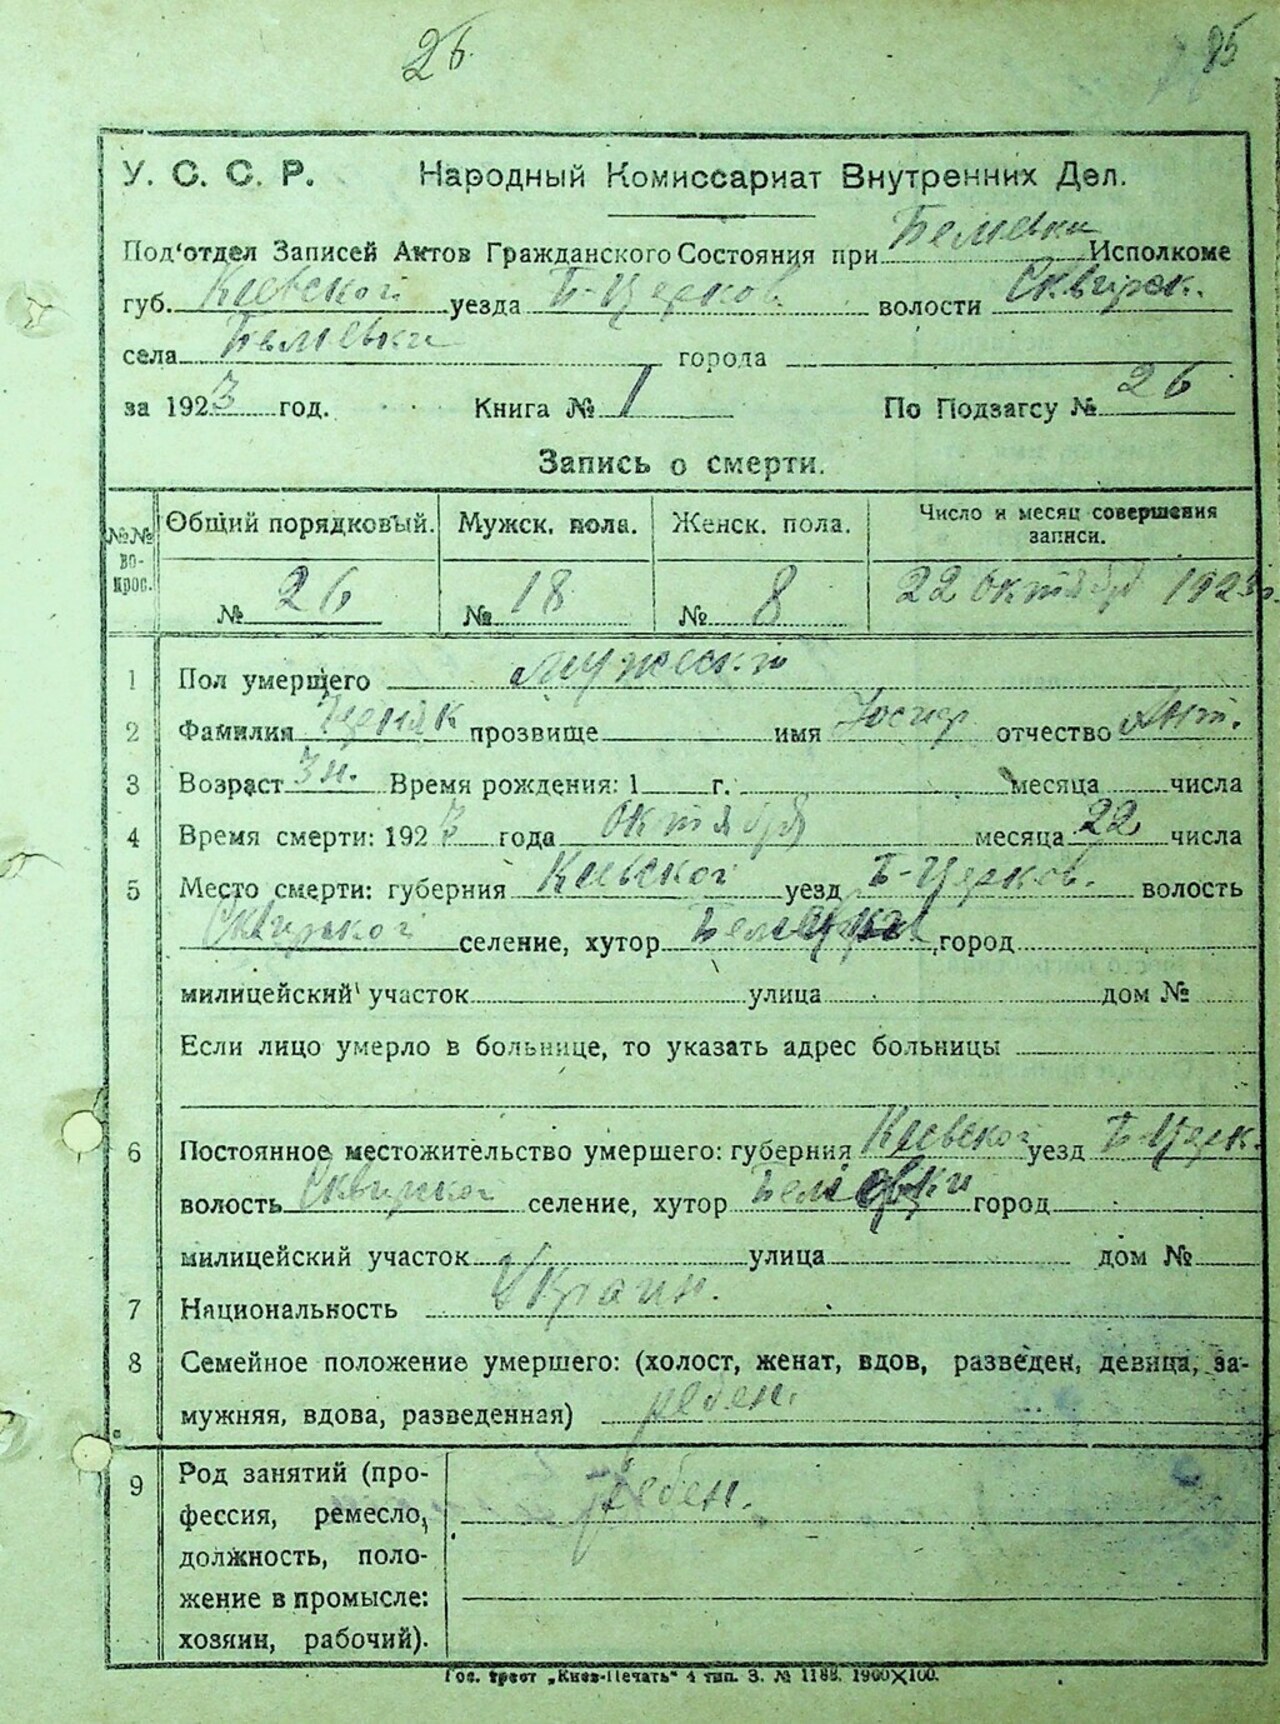 26
85
У. С. С. Р. Народный Комиссариат Внутренних Дел.
Под'отдел Записей Актов Гражданского Состояния при Исполкоме
губ. Киевской уезда Б-Церков. волости Сквирск.
села города
за 1923 год. Книга № 1 По Подзагсу № 26
Запись о смерти.
№№ вопрос. Общий порядковый. Мужск. пола. Женск. пола. Число и месяц совершения записи.
№ 26 № 18 № 8 22 Октября 1923 г.
1 Пол умершего мужеский
2 Фамилия прозвище имя Иосиф отчество Ант.
3 Возраст 3 н. Время рождения: 1 г. месяца числа
4 Время смерти: 1923 года октября месяца 22 числа
5 Место смерти: губерния Киевской уезд Б-Церков. волость
Сквирской селение, хутор город
милицейский участок улица дом №
Если лицо умерло в больнице, то указать адрес больницы
6 Постоянное местожительство умершего: губерния Киевской уезд Б-Церк.
волость Сквирской селение, хутор город
милицейский участок улица дом №
7 Национальность Украин.
8 Семейное положение умершего: (холост, женат, вдов, разведен, девица, за-
мужняя, вдова, разведенная) ребен.
9 Род занятий (про- ребен.
фессия, ремесло,
должность, поло-
жение в промысле:
хозяин, рабочий).
Гос. трест „Киев-Печать" 4 тип. З. № 1188. 1900×100.